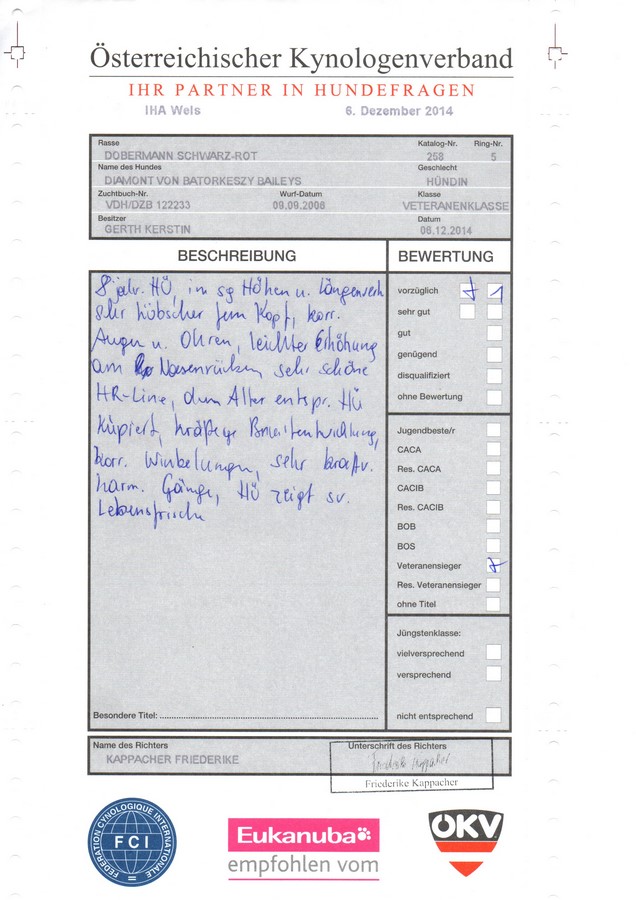 Österreichischer Kynologenverband
IHR PARTNER IN HUNDEFRAGEN
IHA Wels 6. Dezember 2014
Rasse Katalog-Nr. Ring-Nr.
DOBERMANN SCHWARZ-ROT 258 5
Name des Hundes Geschlecht
DIAMONT VON BATORKESZY BAILEYS HÜNDIN
Zuchtbuch-Nr. Wurf-Datum Klasse
VDH/DZB 122233 09.09.2006 VETERANENKLASSE
Besitzer Datum
GERTH KERSTIN 06.12.2014
BESCHREIBUNG
8 jähr. HÜ, im sg Höhen u. Längenverh
sehr hübscher fem Kopf, korr.
Augen u. Ohren, leichter Erhöhung
am Nasenrücken, sehr schöne
HR-Line, dem Alter entspr. HÜ
kupiert, kräftige Brustentwicklung,
korr. Winkelungen, sehr
harm. Gänge, HÜ zeigt sv.
Lebensfrische
Besondere Titel:
BEWERTUNG
vorzüglich 1
sehr gut
gut
genügend
disqualifiziert
ohne Bewertung
Jugendbeste/r
CACA
Res. CACA
CACIB
Res. CACIB
BOB
BOS
Veteranensieger
Res. Veteranensieger
ohne Titel
Jüngstenklasse:
vielversprechend
versprechend
nicht entsprechend
Name des Richters Unterschrift des Richters
KAPPACHER FRIEDERIKE
Friederike Kappacher
Friederike Kappacher
FEDERATION CYNOLOGIQUE INTERNATIONALE
FCI
Eukanuba
empfohlen vom
ÖKV